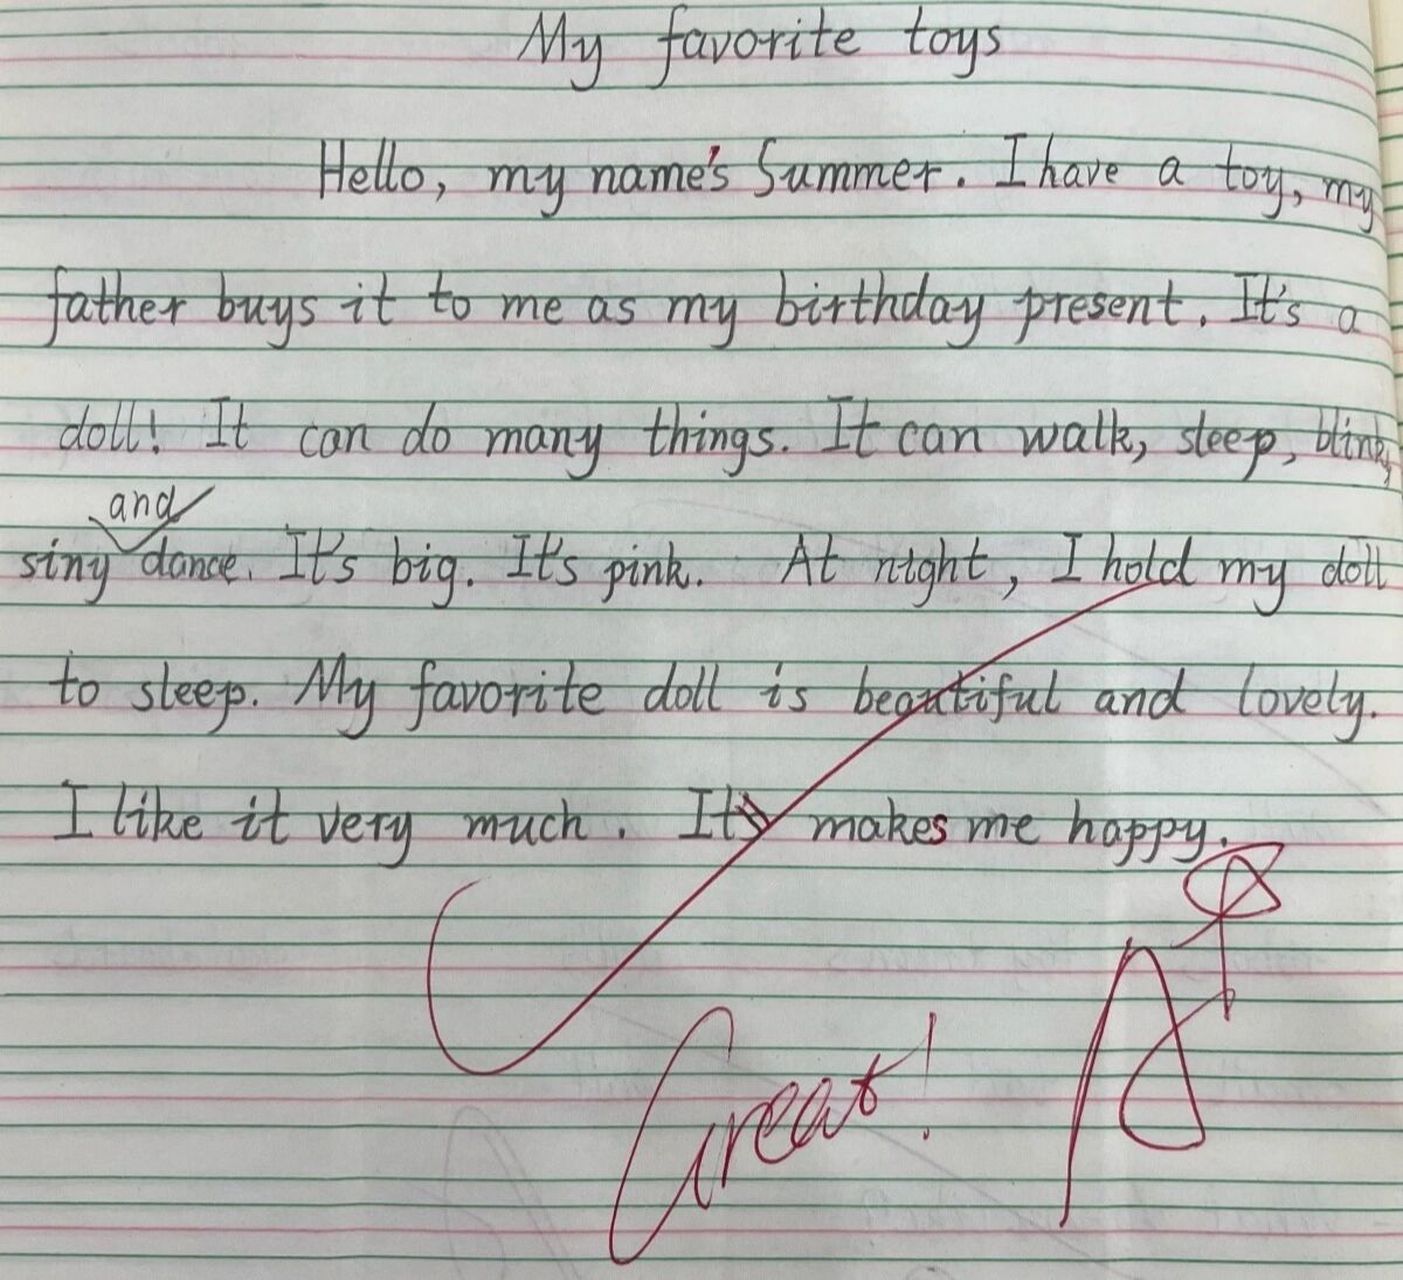 My favorite toys
Hello, my name's Summer. I have a toy, my
father buys it to me as my birthday present. It's a
doll! It can do many things. It can walk, sleep, blink,
and
siny dance. It's big. It's pink. At night, I hold my doll
to sleep. My favorite doll is beautiful and lovely.
I like it very much. It makes me happy.
Great!
A